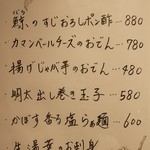 鯨のすじおろしポン酢…880
カマンベールチーズのおでん…780
揚げじゃが芋のおでん…480
明太出し巻き玉子…580
かぼす香る塩らぁ麺…600
生湯葉のお刺身